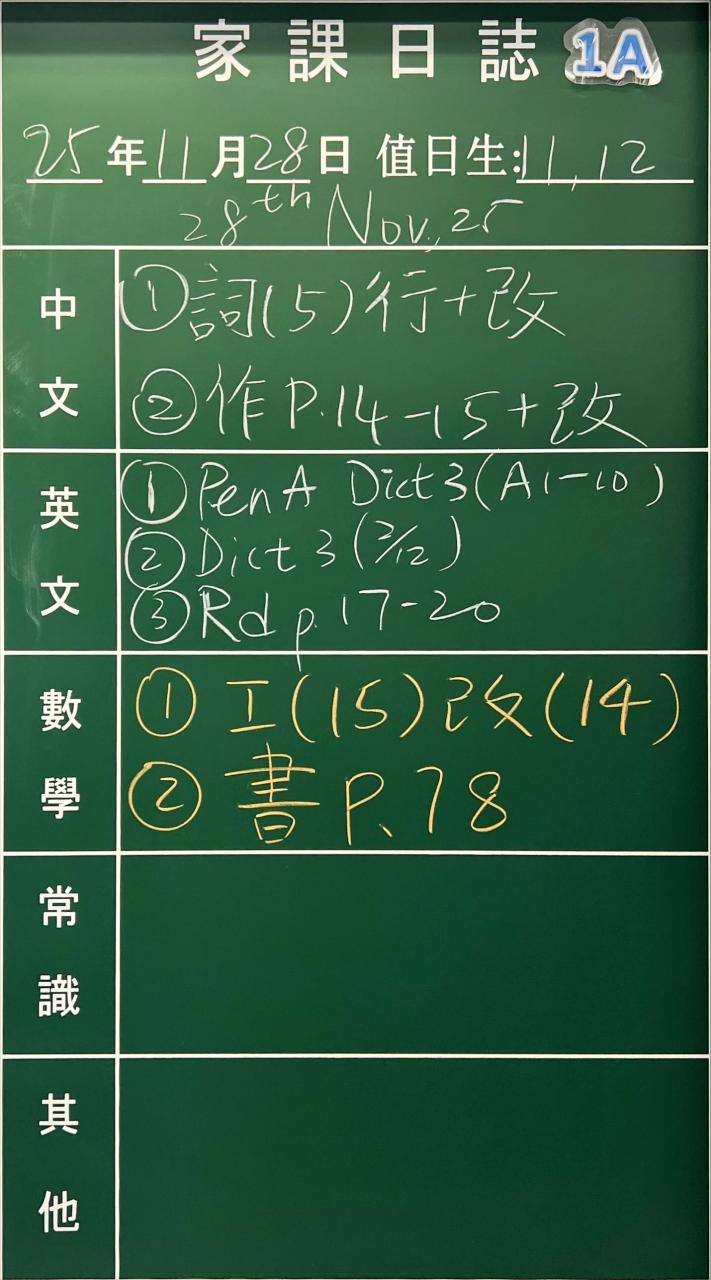 家課日誌 1A
25年11月28日 值日生:11,12
28th Nov,25
中文
①詞(5)行+改
②作P.14-15+改
英文
①Pen A Dict 3(A1-10)
②Dict 3(2/12)
③Rd p.17-20
數學
①工(15)改(14)
②書P.78
常識
其他